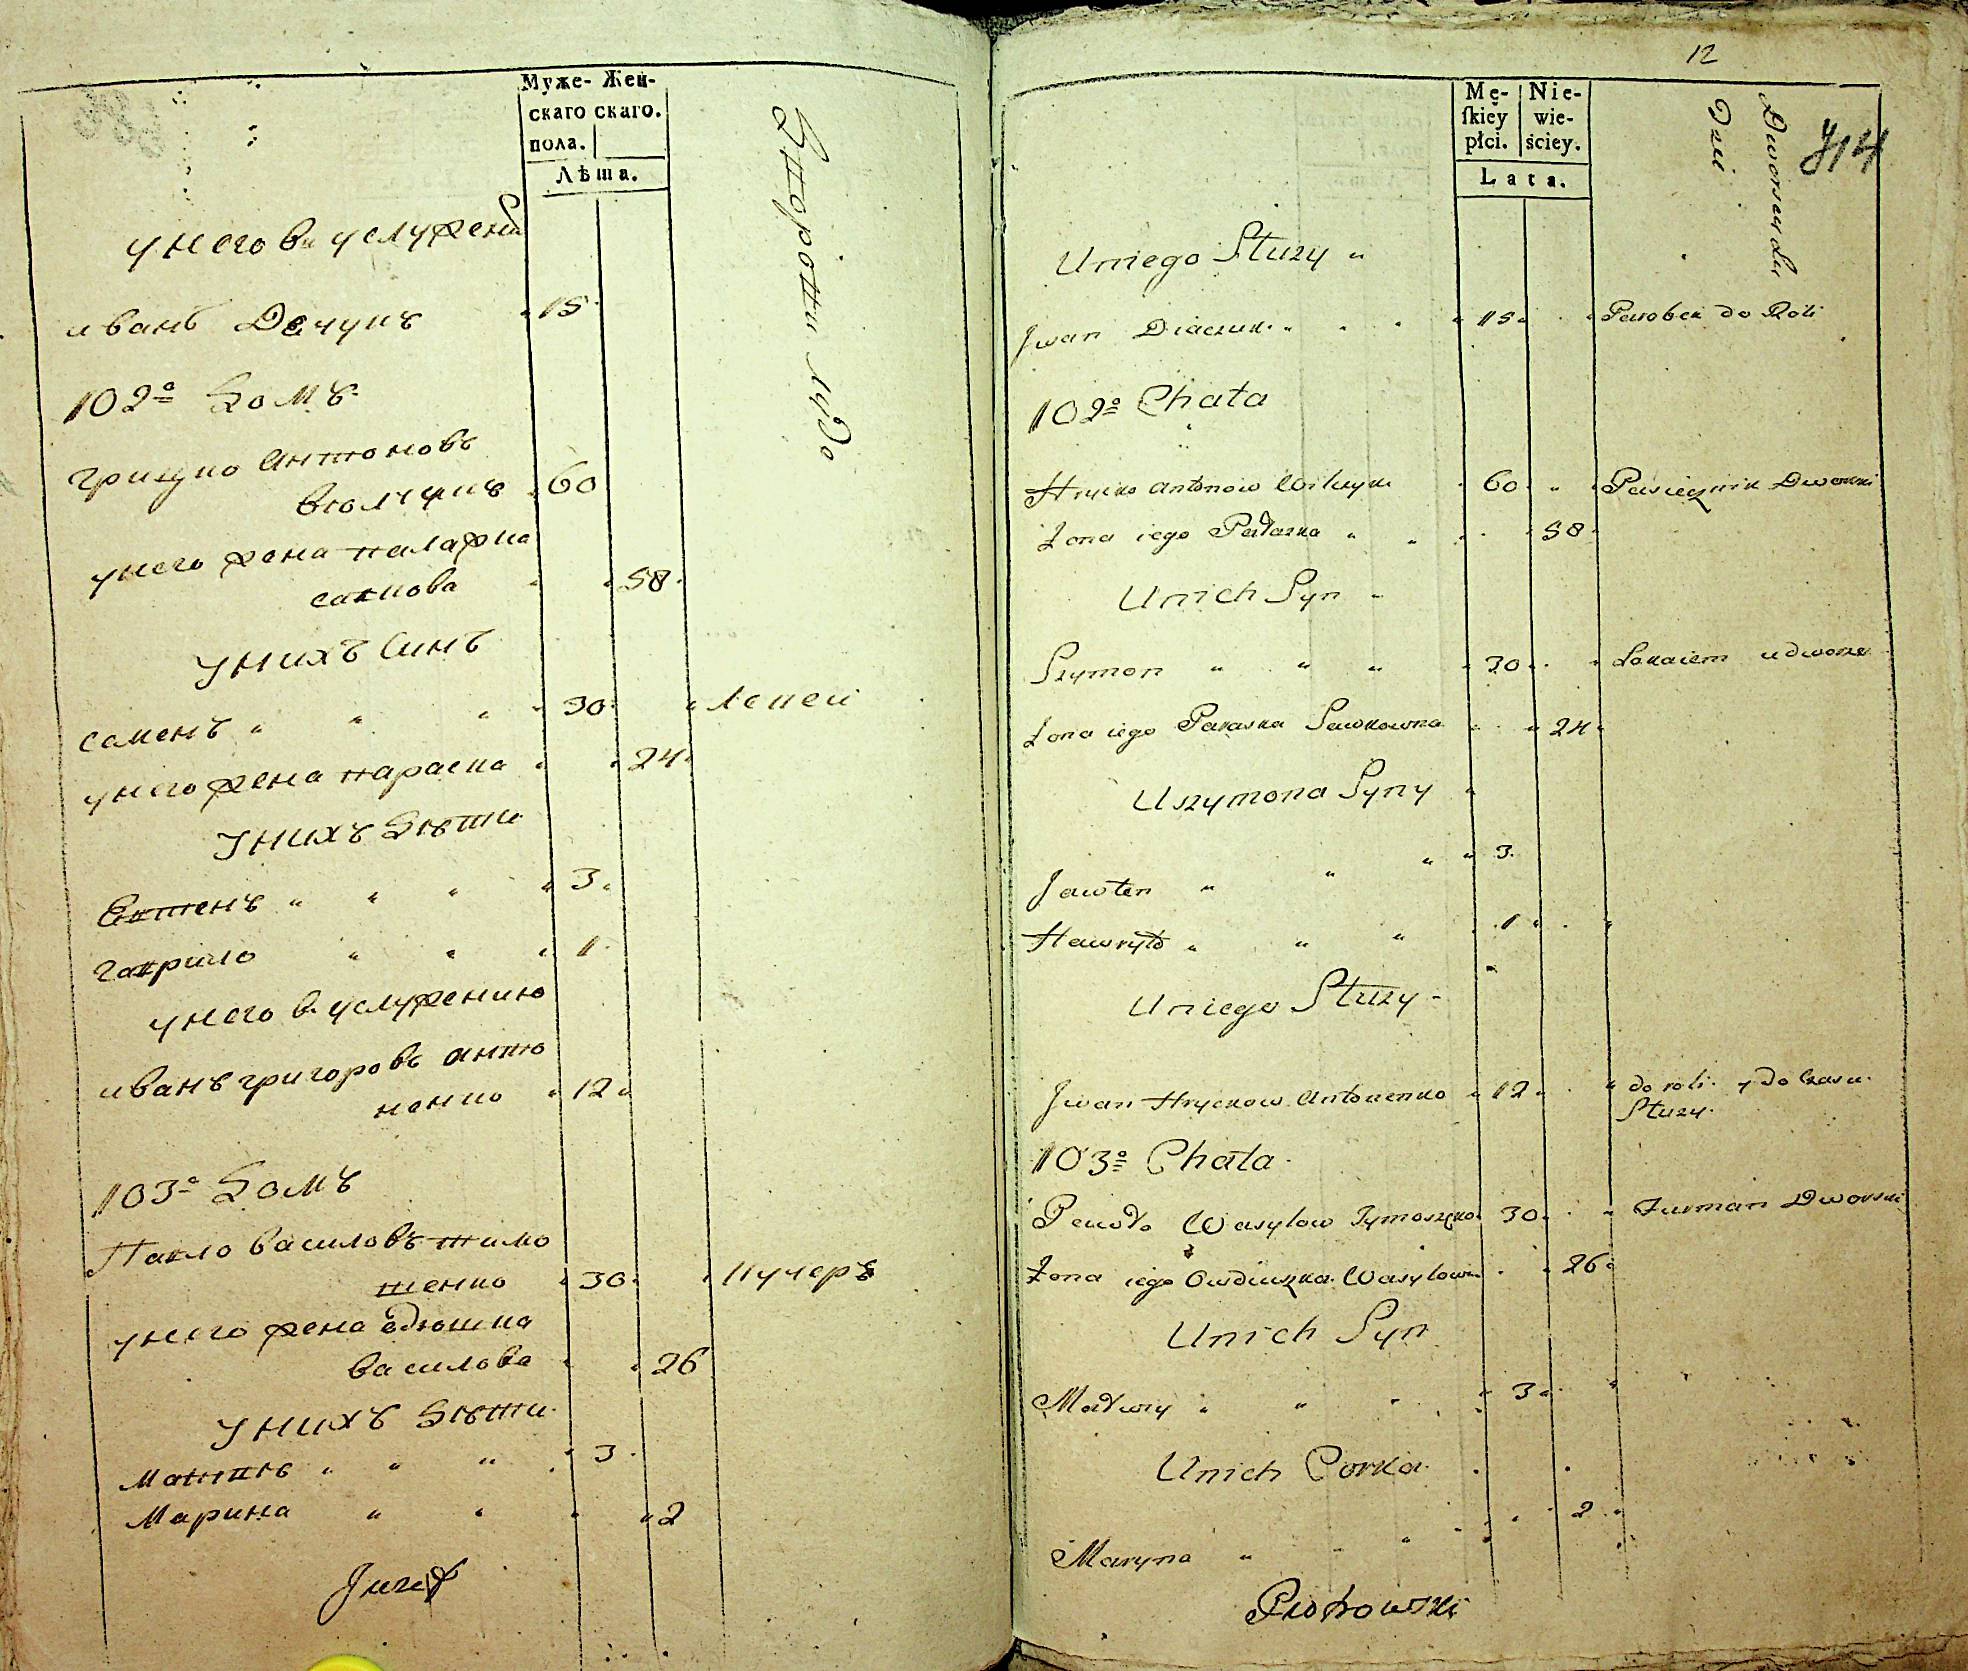 Муже- Жен-
скаго скаго.
пола.
Лѣта.
Второти
у него в услужени
иванъ Дечукъ 15
102º Домъ
грицко антоновъ
вюлчукъ 60
унего жена палажка
сакова 58
унихъ Синъ
семенъ 30 Лепеи
унего жена параска 24
Унихъ Дѣти
Евтенъ 3
гаврило 1
у него в услужению
иванъ григоровъ анто
ненко 12
103º Домъ
Павло василовъ тимо
шенко 30 Кучеръ
унего жена Едюшка
василова 26
Унихъ Дѣти
Матвѣ 3
Марина 2
Juzef
12
714
Mę- Nie-
ſkiey wie-
płci. ściey.
Lata.
Dworscy Lu
Dzi
Uniego Służy
Jwan Diaczuk 15 Parobek do Roli
102º Chata
Hrycko Antonow Wilczyk 60 Pasiecznik Dworski
Żona iego Pałaszka 58
Unich Syn
Szymon 30 Lokaiem u dworze
Żona iego Paraska Sawkowna 24
U szymona Syny
Jawten 3
Hawryło 1
Uniego Służy
Jwan Hryckow Antonenko 12 do roli y do Czasu
Służy
103º Chata
Pawło Wasylow Tymoszęko 30 Furman Dworski
Żona iego Owdiuszka Wasylow 26
Unich Syn
Madwiy 3
Unich Corka
Maryna 2
Piotrowski